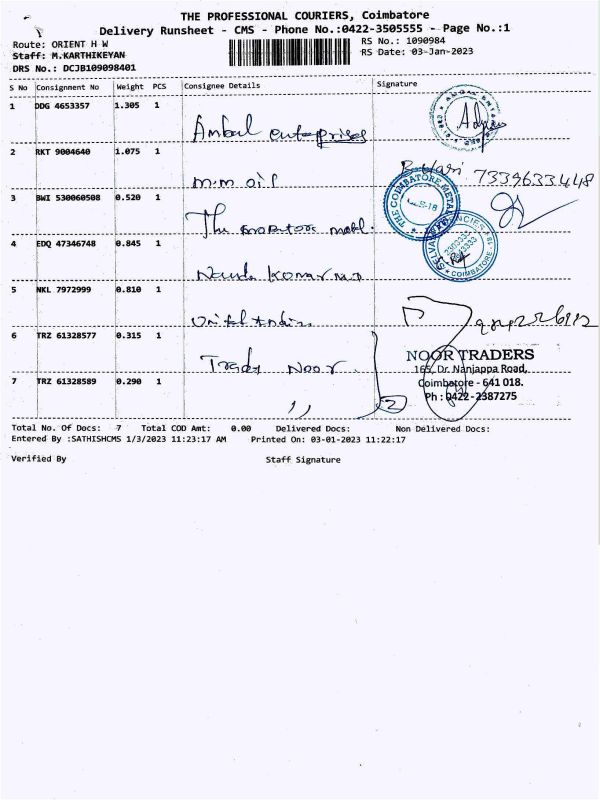 THE PROFESSIONAL COURIERS, Coimbatore
Delivery Runsheet - CMS - Phone No.:0422-3505555 - Page No.:1
Route: ORIENT H W
RS No.: 1090984
Staff: M.KARTHIKEYAN
RS Date: 03-Jan-2023
DRS No.: DCJB109098401
S No Consignment No Weight PCS Consignee Details Signature
1 DDG 4653357 1.305 1
Ambal enterprises
2 RKT 9004640 1.075 1
m.m oil 7339633448
3 BWI 530060508 0.520 1
The
THE COIMBATORE METAL
4 EDQ 47346748 0.845 1
Nanda Kumar
SELVA AGENCIES
COIMBATORE
5 NKL 7972999 0.810 1
United
6 TRZ 61328577 0.315 1
Trady Noor
NOOR TRADERS
165, Dr. Nanjappa Road,
Coimbatore - 641 018.
Ph : 0422-2387275
7 TRZ 61328589 0.290 1
,, 2
Total No. Of Docs: 7 Total COD Amt: 0.00 Delivered Docs: Non Delivered Docs:
Entered By :SATHISHCMS 1/3/2023 11:23:17 AM Printed On: 03-01-2023 11:22:17
Verified By Staff Signature